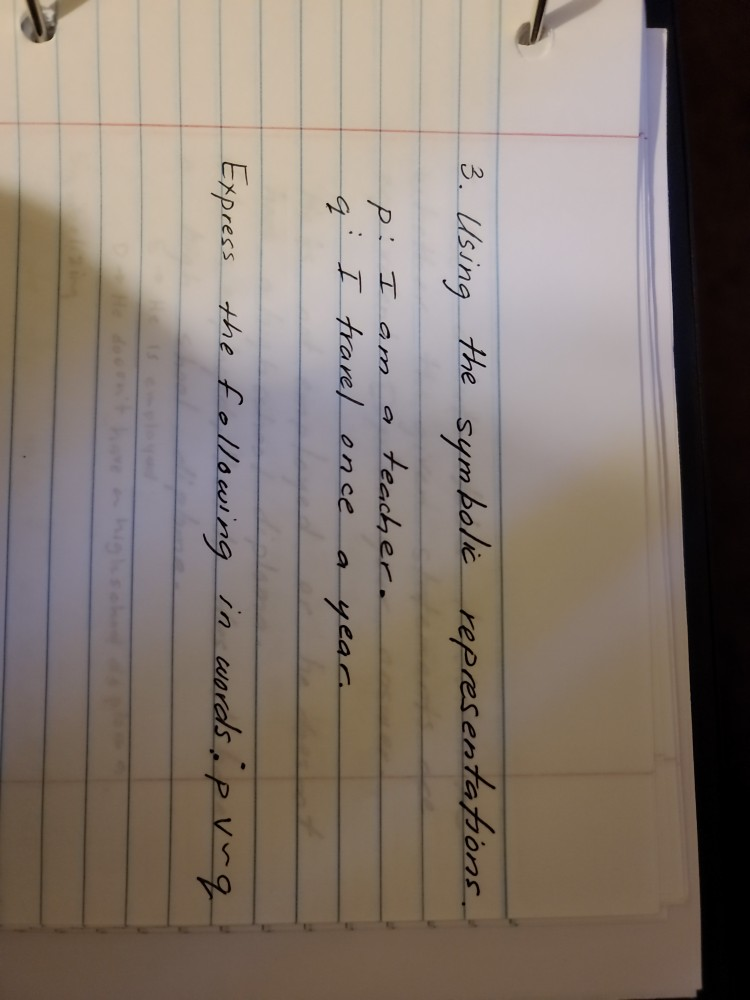 3. Using the symbolic representations.
p: I am a teacher.
q: I travel once a year.
Express the following in words: p ∨ ~q